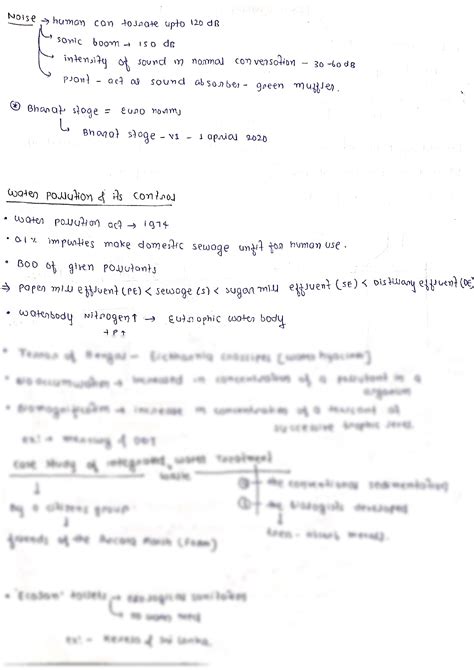 Noise → human can tolerate upto 120 dB
↳ sonic boom → 150 dB
↳ intensity of sound in normal conversation - 30-60 dB
↳ plant - act as sound absorber - green muffler.
* Bharat stage = Euro norms
↳ Bharat stage - VI - 1 april 2020
Water pollution & its control
• Water pollution act → 1974
• 0.1% impurities make domestic sewage unfit for human use.
• BOD of given pollutants
⇒ paper mill effluent (PE) < sewage (S) < sugar mill effluent (SE) < Distillary effluent (DE)
• Waterbody nitrogen↑ → Eutrophic water body
+ P↑
• Terror of Bengal - Eichhornia crassipes (water hyacinth)
• Bioaccumulation → increased in concentration of a pollutant in a
organism
• Biomagnification → increase in concentration of a toxicant at
successive trophic level.
ex:- → mercury & DDT
Case study of integrated waste treatment
water
↓
By a citizens group
↓
friends of the Arcata Marsh (FOAM)
① the conventional sedimentation
② the biologists developed
↓
• 'EcoSan' toilets → ecological sanitation
↳ no water need
ex:- Kerala & Sri Lanka.